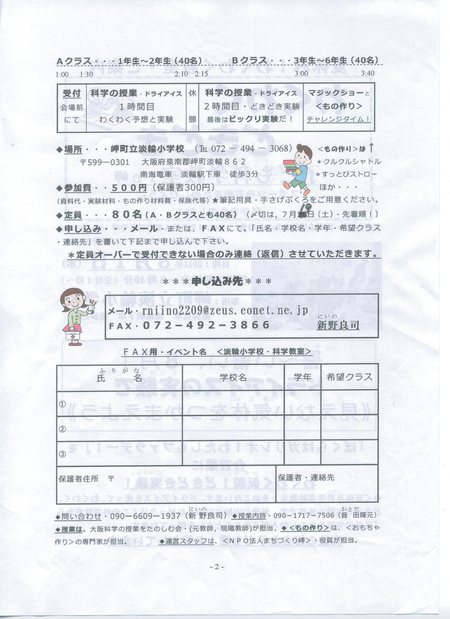 Aクラス・・・1年生～2年生(40名) Bクラス・・・3年生～6年生(40名)
1:00 1:30 2:10 2:15 3:00 3:40
受付 科学の授業・ドライアイス 休 科学の授業・ドライアイス マジックショーと
会場前 1時間目 2時間目・どきどき実験 <もの作り>
にて わくわく予想と実験 憩 最後はビックリ実験だ! チャレンジタイム!
◆場所・・・岬町立淡輪小学校 (℡072－494－3068) <もの作り>は↑
〒599―0301 大阪府泉南郡岬町淡輪862 *クルクルシャトル
南海電車 淡輪駅下車 徒歩3分 *すっとびストロー
◆参加費・・500円(保護者300円) ほか・・・
(資料代・実験材料・もの作り材料費・保険代など)★筆記用具・手さげぶくろをご用意ください。
◆定員・・・80名(A・Bクラスとも40名) (〆切は,7月 日(土)・先着順!)
◆申し込み・・・メール・または、FAXにて、「氏名・学校名・学年・希望クラス
・連絡先」を書いて下記まで申し込んで下さい。
*定員オーバーで受付できない場合のみ連絡(返信)させていただきます。
***申し込み先***
メール・rniino2209@zeus.eonet.ne.jp
FAX・072－492－3866 新野良司
にいの
FAX用・イベント名 <淡輪小学校・科学教室>
ふりがな
氏 名 学校名 学年 希望クラス
①
②
③
保護者住所 〒 保護者・連絡先
にいの おとだ
◆問い合わせ・090-6609-1937(新野良司) ◆授業内容・090-1717-7506(音田輝元)
◆授業は、大阪科学の授業をたのしむ会・(元教師,現職教師)が担当。◆<もの作り>は、<おもちゃ
作り>の専門家が担当。 ◆運営スタッフは、<NPO法人まちづくり岬>・役員が担当。
-2-